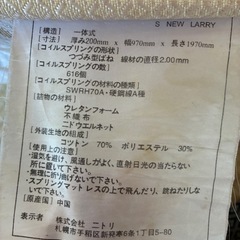 S NEW LARRY
[構造] 一体式
[寸法] 厚み200mm x 幅970mm x 長さ1970mm
[コイルスプリングの形状]
つづみ型ばね 線材の直径2.00mm
[コイルスプリングの数]
616個
[コイルスプリングの材料の種類]
SWRH70A・硬鋼線A種
[詰物の材料]
ウレタンフォーム
不織布
ニドウエルネット
[外装生地の組成]
コットン 70% ポリエステル 30%
[使用上の注意]
・湿気を避け、風通しがよく、直射日光の当たらない
所に置いて下さい。
・スプリングマットレスの上で飛んだり、跳ねたりしな
いで下さい。
[原産国] 中国
表示者 株式会社 ニトリ
札幌市手稲区新発寒6条1丁目5-80